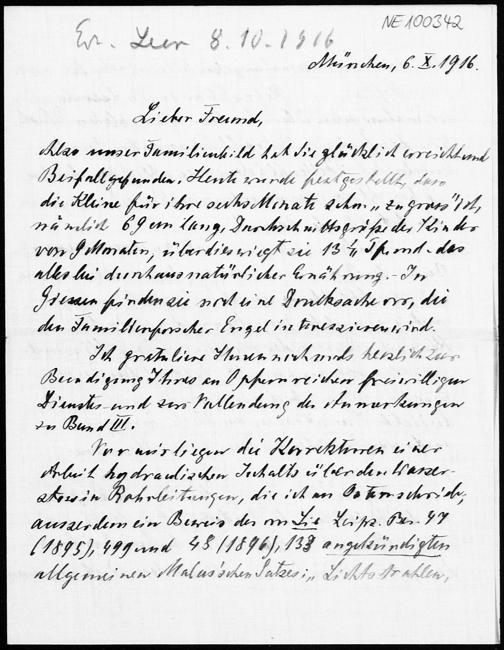 NE100342
Er. Leer 8.10.1916
München, 6. X. 1916.
Lieber Freund,
Also unser Familienbild hat Sie glücklich erreicht und
Beifall gefunden. Heute wurde festgestellt, dass
die Kleine für ihre sechs Monate schon „zu gross" ist,
nämlich 69 cm lang, Durchschnittsgrösse der Kinder
von 9 Monaten, überdies wiegt sie 13 ½ Pfund - das
alles bei durchaus natürlicher Ernährung. In
Giessen finden sie noch eine Drucksache vor, die
den Familienforscher Engel interessieren wird.
Ich gratuliere Ihnen nochmals herzlich zur
Beendigung Ihres an Opfern reichen freiwilligen
Dienstes und zur Vollendung der Anmerkungen
zu Band III.
Vor mir liegen die Korrekturen einer
Arbeit hydraulischen Inhalts über den Wasser-
stoss in Rohrleitungen, die ich an schrieb,
ausserdem ein Beweis des von Lie Leipz. Ber. 47
(1895), 499 und 48 (1896), 133 angekündigten
allgemeinen Malus'schen Satzes: „Lichtstrahlen,